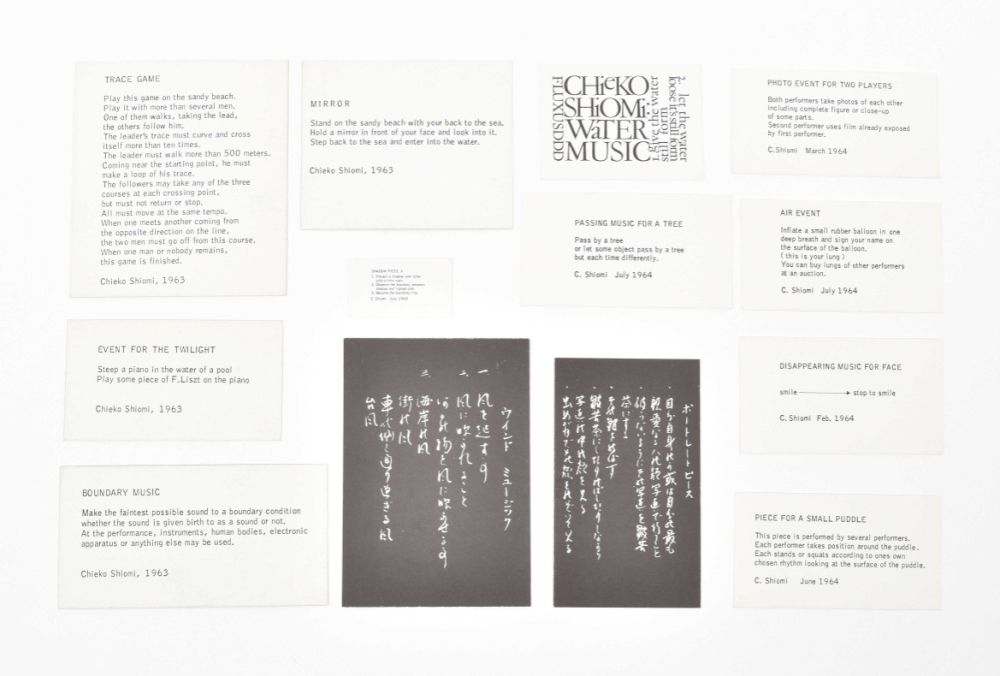 TRACE GAME
Play this game on the sandy beach.
Play it with more than several men.
One of them walks, taking the lead,
the others follow him.
The leader's trace must curve and cross
itself more than ten times.
The leader must walk more than 500 meters.
Coming near the starting point, he must
make a loop of his trace.
The followers may take any of the three
courses at each crossing point,
but must not return or stop.
All must move at the same tempo.
When one meets another coming from
the opposite direction on the line,
the two men must go off from this course.
When one man or nobody remains,
this game is finished.
Chieko Shiomi, 1963
MIRROR
Stand on the sandy beach with your back to the sea.
Hold a mirror in front of your face and look into it.
Step back to the sea and enter into the water.
Chieko Shiomi, 1963
CHIEKO
SHIOMI:
WATER
MUSIC
FLUXUSDDD
1. give the water
still form
2. let the water
loose its still form
PHOTO EVENT FOR TWO PLAYERS
Both performers take photos of each other
including complete figure or close-up
of some parts.
Second performer uses film already exposed
by first performer.
C. Shiomi March 1964
PASSING MUSIC FOR A TREE
Pass by a tree
or let some object pass by a tree
but each time differently.
C. Shiomi July 1964
AIR EVENT
Inflate a small rubber balloon in one
deep breath and sign your name on
the surface of the balloon.
( this is your lung )
You can buy lungs of other performers
at an auction.
C. Shiomi July 1964
EVENT FOR THE TWILIGHT
Steep a piano in the water of a pool
Play some piece of F.Liszt on the piano
Chieko Shiomi, 1963
ウインド ミュージック
一. 風を起すこと
二. 風に吹かれること
三.
海岸の風
街の風
台風
ポートレートピース
DISAPPEARING MUSIC FOR FACE
smile ⟶ stop to smile
C. Shiomi Feb. 1964
BOUNDARY MUSIC
Make the faintest possible sound to a boundary condition
whether the sound is given birth to as a sound or not.
At the performance, instruments, human bodies, electronic
apparatus or anything else may be used.
Chieko Shiomi, 1963
PIECE FOR A SMALL PUDDLE
This piece is performed by several performers.
Each performer takes position around the puddle.
Each stands or squats according to ones own
chosen rhythm looking at the surface of the puddle.
C. Shiomi June 1964